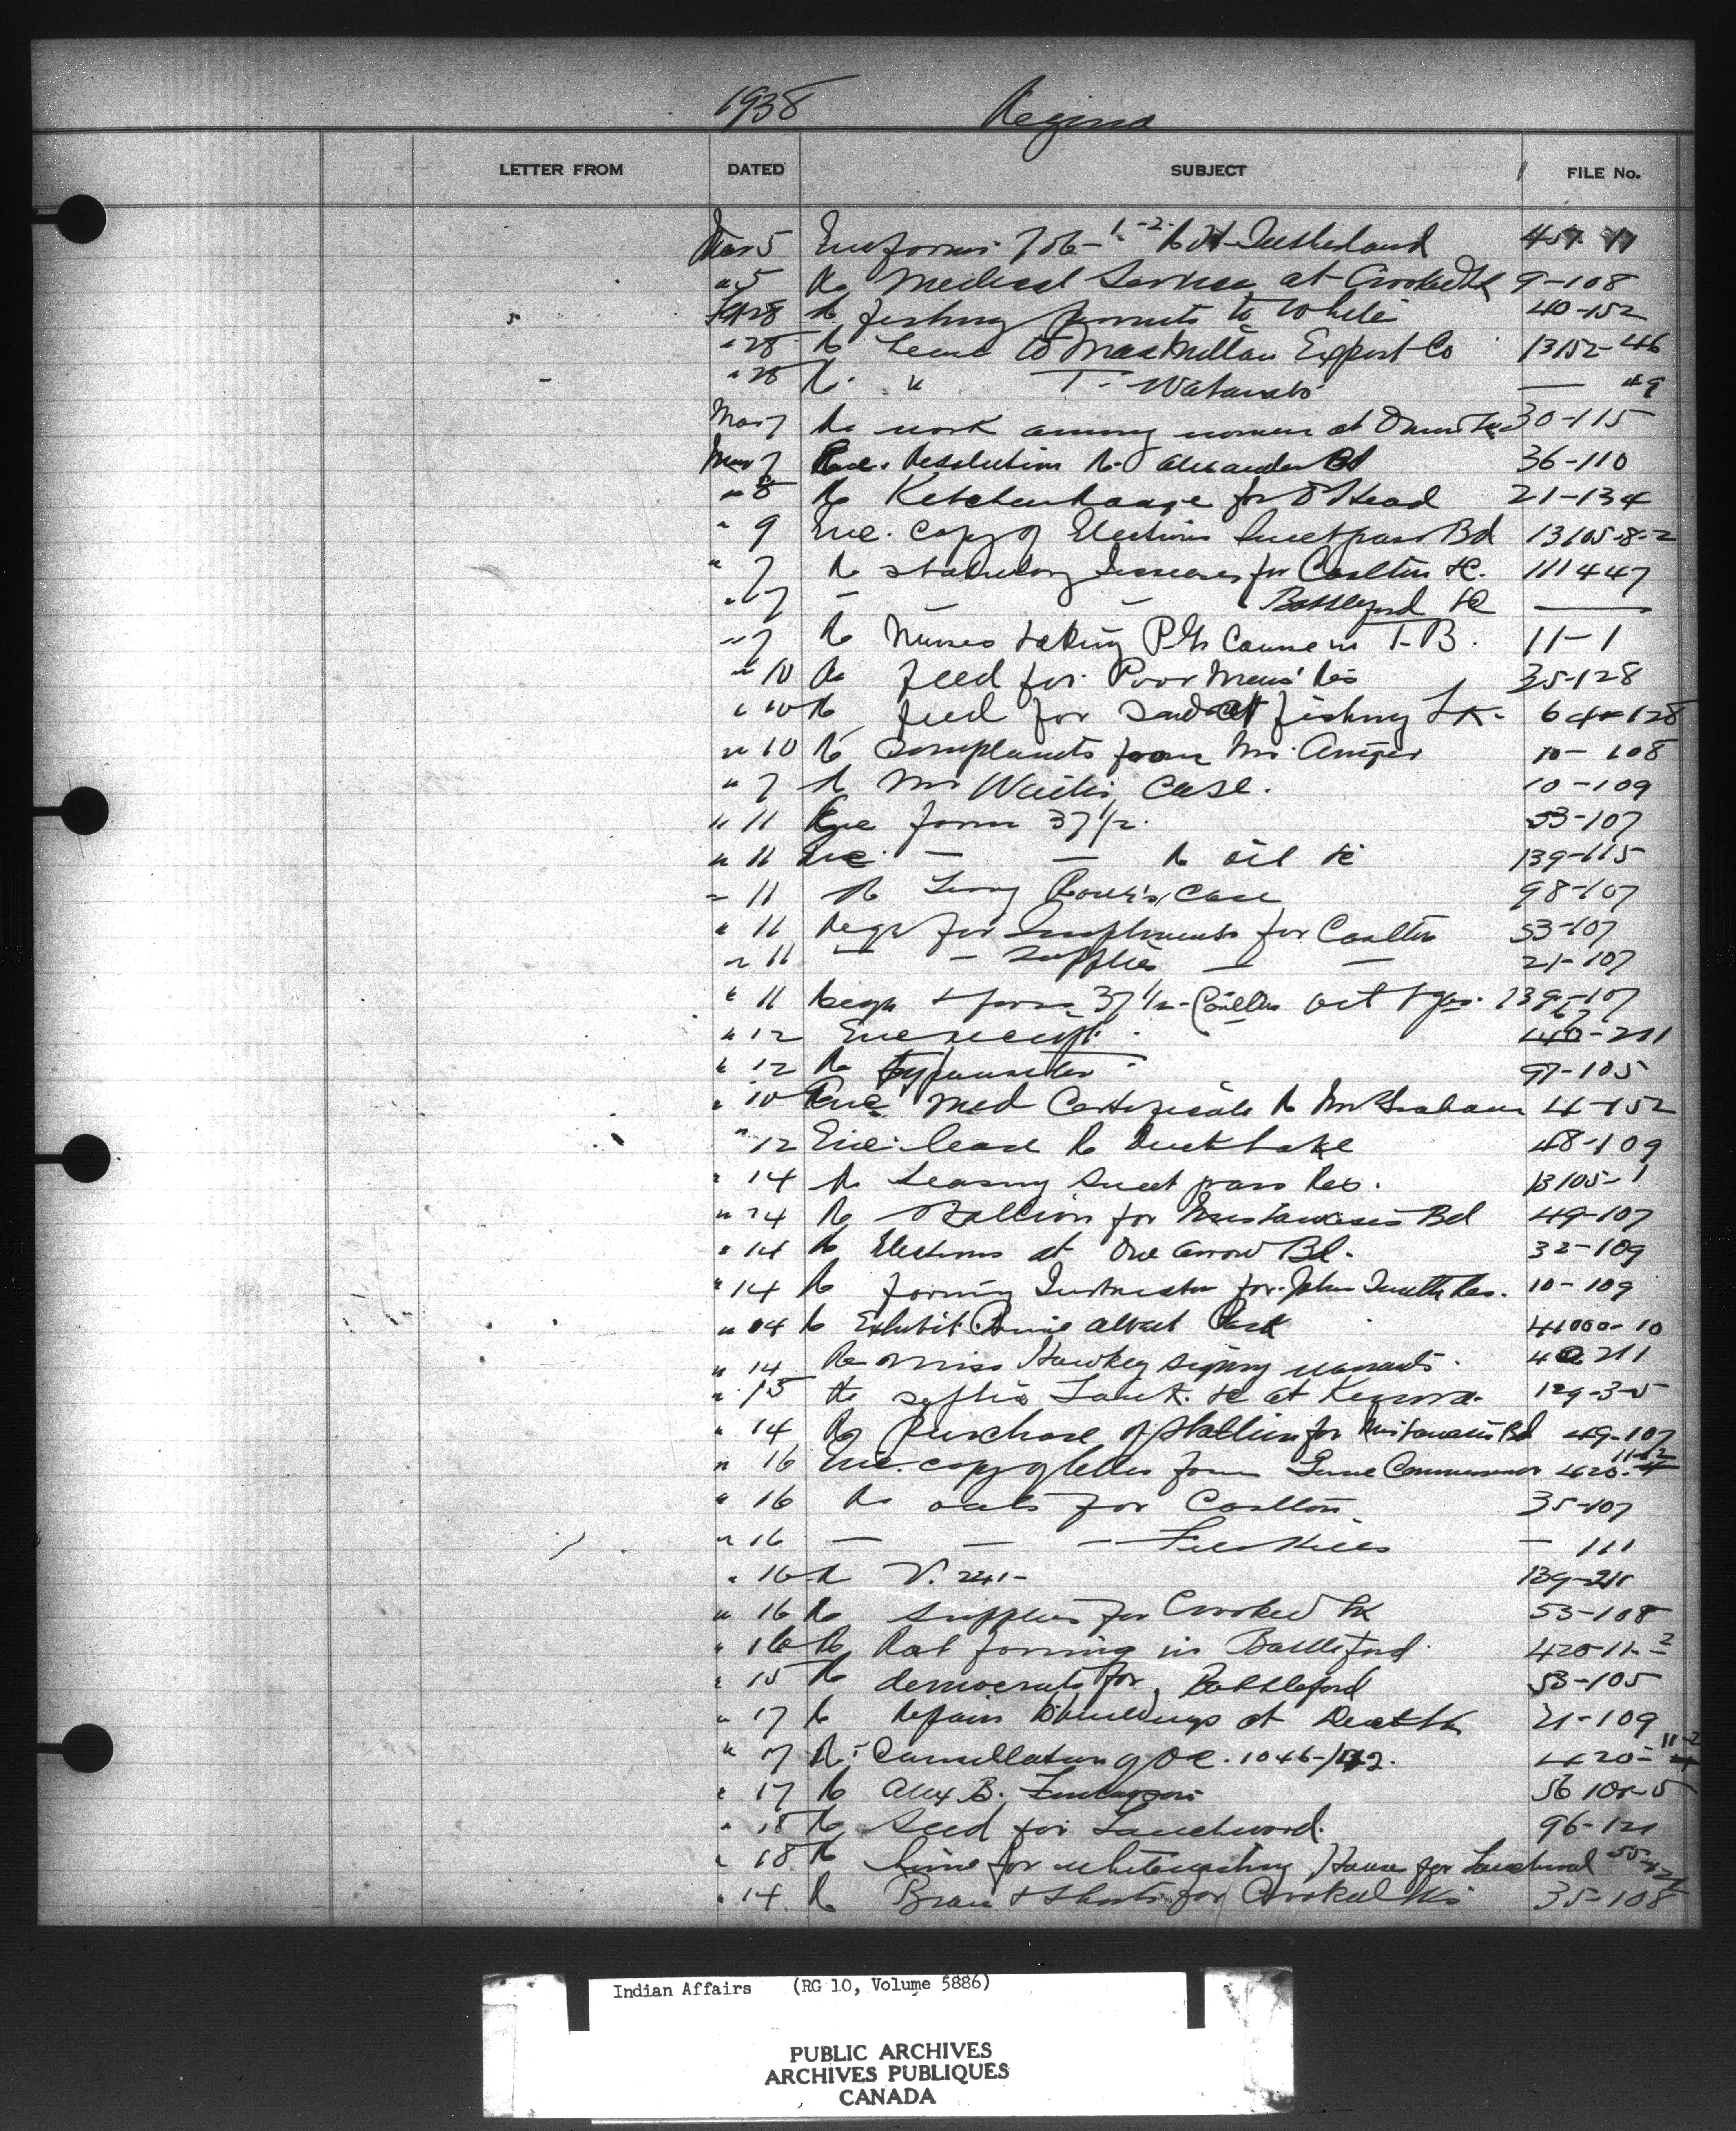 1938 Regina
LETTER FROM DATED SUBJECT FILE No.
Mar 5 Enc forms 706-1-2- Re Sutherland
" 5 Re Medical Services at Crooked Lk 9-108
Feb 28 Re fishing permits to White 40-152
" 28 Re Lease to MacMillan Export Co 13152-46
" 28 Re " T. Watanabe — 49
Mar 7 Re work among women at 30-115
Mar 7 Enc. Resolution Re Alexander Bd 36-110
" 8 Re Kitchen Range for 21-134
" 9 Enc. copy of Elections Sweetgrass Bd 13105-8-2
" 7 Re statutory Increases for Carlton &c. 111447
" 7 — — Battleford &c —
" 7 Re Nurses taking P.G. Course in T.B. 11-1
" 10 Re feed for Poor Mans' Res 35-128
" 10 Re feed for fishing Lk. 64-128
" 10 Re complaints from Mr. 10-108
" 7 Re Mr case. 10-109
" 11 Enc form 37 1/2. 53-107
" 11 Enc. — — Re oil &c 139-115
" 11 Re case 98-107
" 11 Reqn for Implements for Carlton 53-107
" 11 — — supplies — — 21-107
" 11 Reqn & form 37 1/2 - Carlton
" 12 Enc receipt. -211
" 12 Re typewriter 97-105
" 10 Enc Med Certificate Re Mr Graham 4-152
" 12 Enc. lease Re Duck Lake 48-109
" 14 Re Leasing Sweet grass Res. 13105-1
" 14 Re Stallion for Mistawasis Bd 49-107
" 14 Re Elections at One Arrow Bd. 32-109
" 14 Re farming Instructor for John Smith Res. 10-109
" 14 Re Exhibit Prince Albert 41000-10
" 14 Re Miss Hawkey signing warrants. 211
" 15 Re septic Tank &c at Kenora. 129-3-5
" 14 Re Purchase of Stallion for Mistawasis Bd 49-107
" 16 Enc. copy of letter from Game Commissioner 420-11-2
" 16 Re oats for Carlton 35-107
" 16 — — — File Hills — 111
" 16 Re V. 241- 139-211
" 16 Re supplies for Crooked Lk 53-108
" 16 Re Rat farming in Battleford. 420-11-2
" 15 Re democrats for Battleford 53-105
" 17 Re Repairs to buildings at Duck Lk 21-109
" 17 Re Cancellation of OC. 1046- 420-11-2
" 17 Re Alex B. 56 105-5
" 18 Re Seed for Touchwood. 96-121
" 18 Re lime for whitewashing House for Touchwood 55-121
" 14 Re Bran & Shorts for Crooked Lks 35-108
Indian Affairs (RG 10, Volume 5886)
PUBLIC ARCHIVES
ARCHIVES PUBLIQUES
CANADA